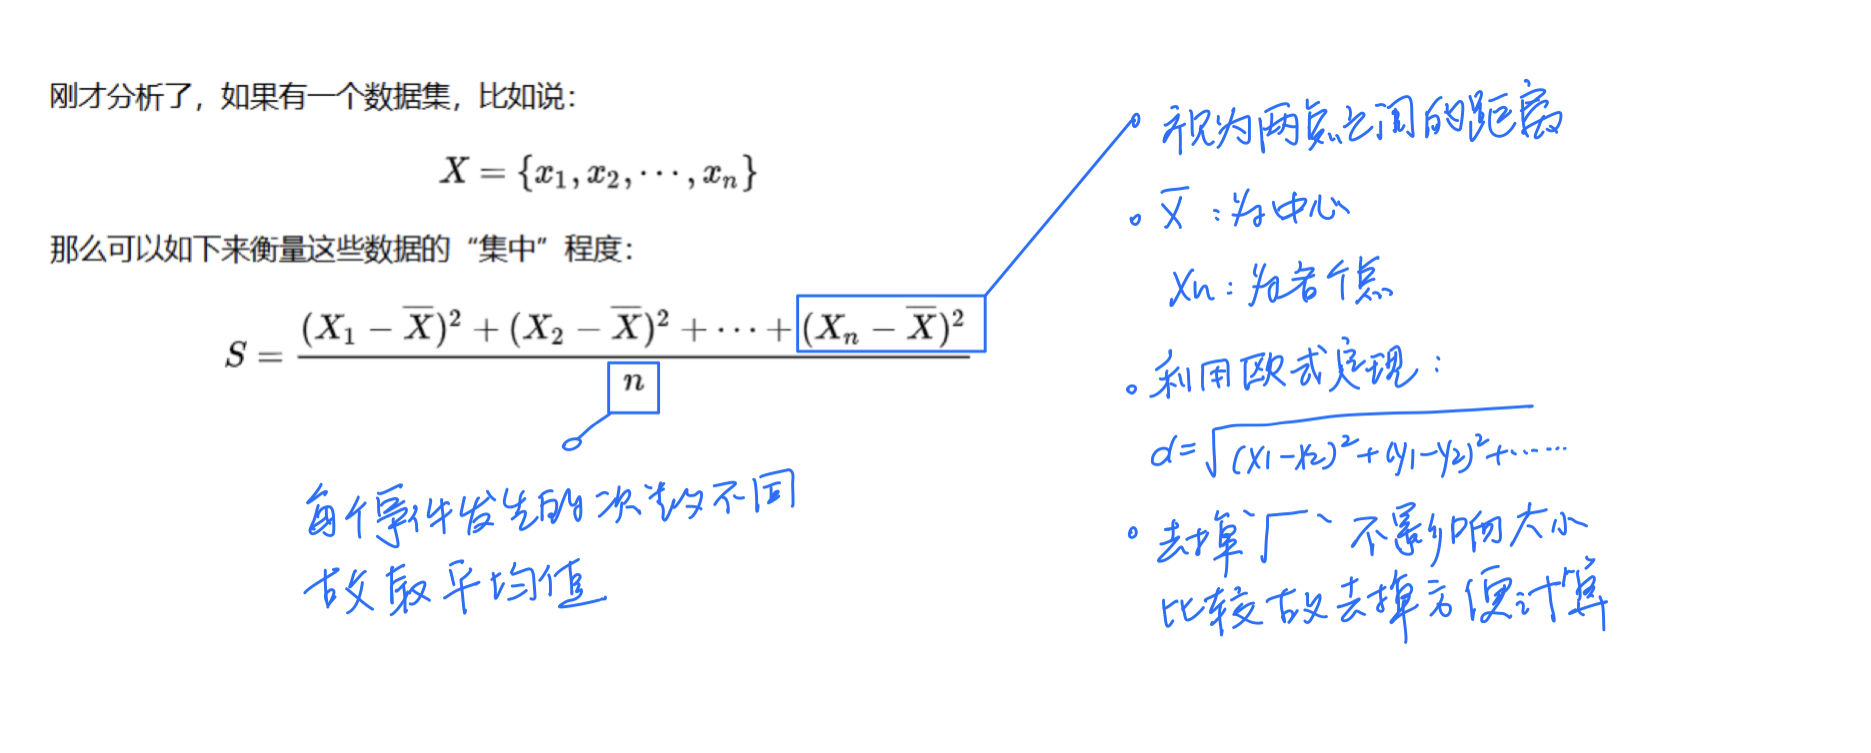 刚才分析了，如果有一个数据集，比如说：
X = {x₁, x₂, ⋯, xₙ}
那么可以如下来衡量这些数据的“集中”程度：
S = ((X₁ − X̅)² + (X₂ − X̅)² + ⋯ + (Xₙ − X̅)²) / n
每个事件发生的次数不同
故取平均值
视为两点之间的距离
X̅：为中心
Xn：为各个点
利用欧式定理：
d=√((X1-X2)²+(y1-y2)²+……
去掉`√ˋ不影响大小
比较故去掉方便计算